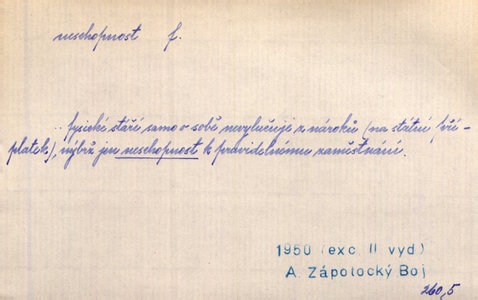 neschopnost f.
.. fysické stáří samo o sobě nevylučuje z nároků (na státní pří-
platek), nýbrž jen neschopnost k pravidelnému zaměstnání.
1950 (exc II vyd)
A. Zápotocký Boj
260,5